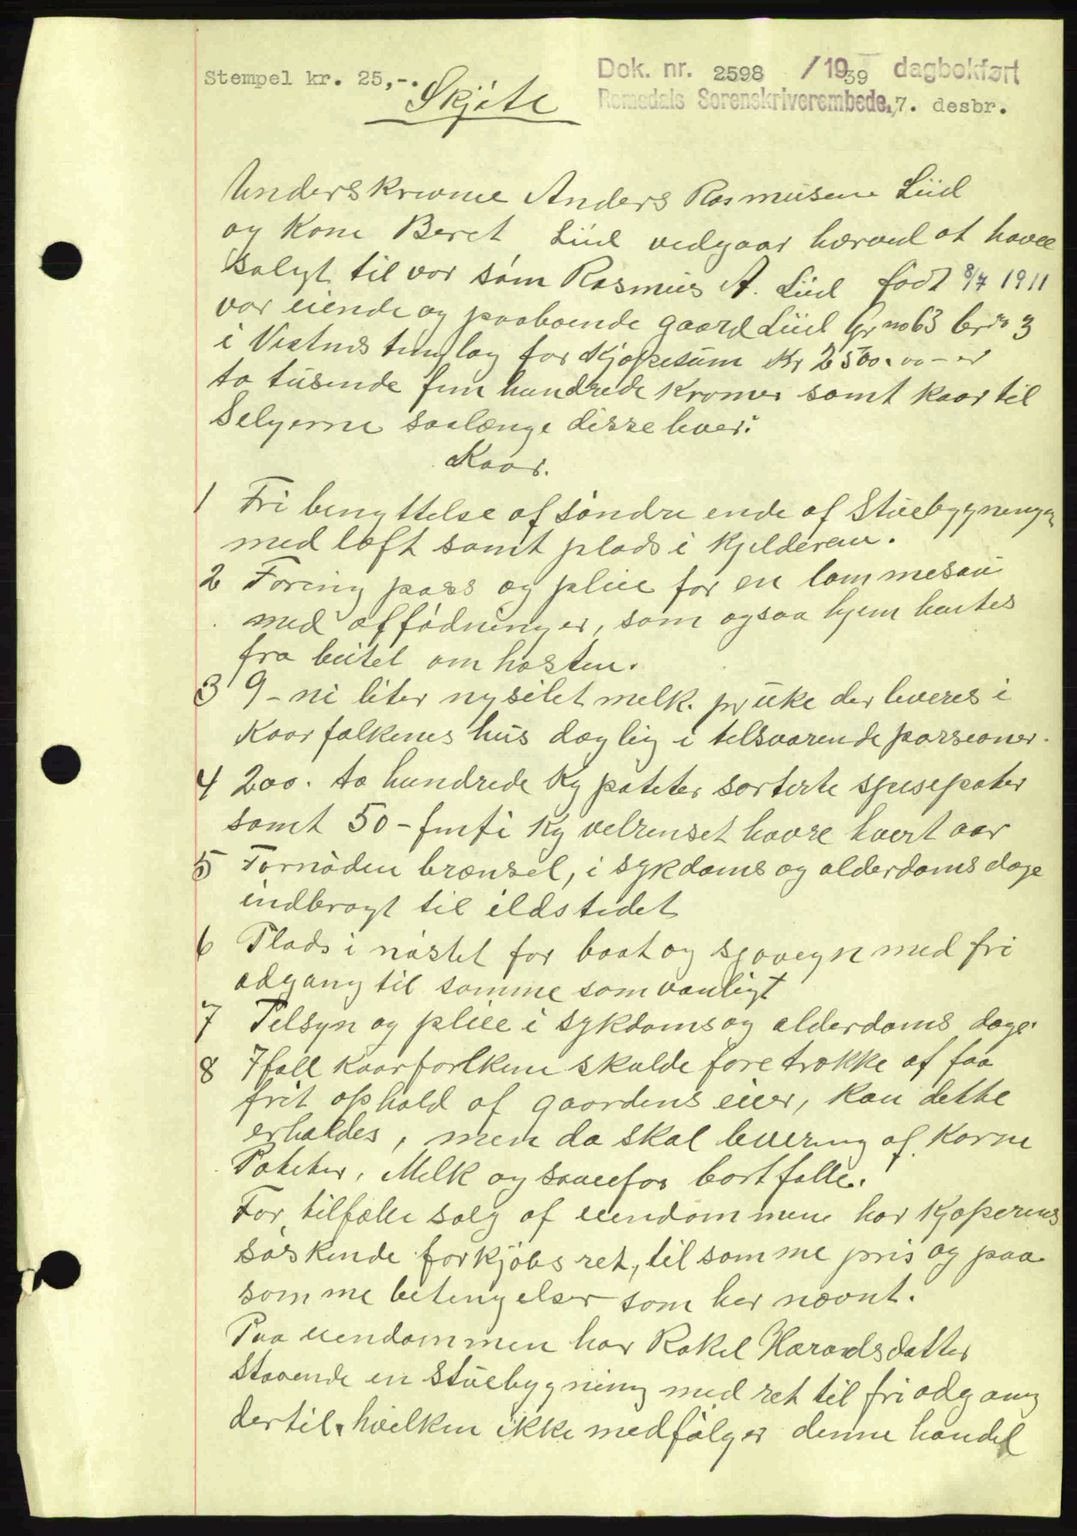 Stempel kr. 25,-.
Dok. nr. 2598 /1939 dagbokført
Romsdals Sorenskriverembede, 7. desbr.
Skjøte
Underskrevne Anders Rasmusen Lüd
og Kone Beret Lüd vedgaar herved at have
solgt til vor søn Rasmus A. Lüd født 8/7 1911
vor eiende og paaboende gaard Lüd Gr no 63 br no 3
i Vestnes tinglag for Kjøpesum Kr 2500.00 - er
to tusende fem hundrede Kroner samt kaar til
Selgerne saalænge disse lever:
Kaar.
1 Fri benyttelse af søndre ende af Stuebygningen
med loft samt plads i Kjelderen.
2 Foring pass og pleie for en lammesau
med affødninger, som ogsaa hjem hentes
fra beitet om høsten.
3 9 - ni liter nysilet melk. pr uke der leveres i
Kaarfolkenes hus daglig i tilsvarende porsioner.
4 200. to hundrede Kg poteter sorterte spisepoteter
samt 50 - femti Kg velrenset havre hvert aar
5 Fornøden brænsel, i sykdoms og alderdoms dage
indbragt til ildstedet
6 Plads i nøstet for baat og sjøvegn med fri
adgang til samme som vanligt
7 Tilsyn og pleie i sykdoms og alderdoms dage.
8 Ifall Kaarfolkene skulde foretrække at faa
frit ophold af gaardens eier, kan dette
erholdes, men da skal levering af Korne
Poteter, Melk og sauefor bortfalle.
For tilfælle salg af eiendommene har Kjøperens
søskende forkjøbsret, til samme pris og paa
samme betingelser som her nævnt.
Paa eiendommen har Rakel Haraldsdatter
staaende en stuebygning med ret til fri adgang
dertil. hvilken ikke medfølger denne handel